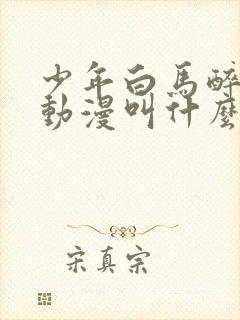 少年白馬醉
動漫叫什麼
宋真宗